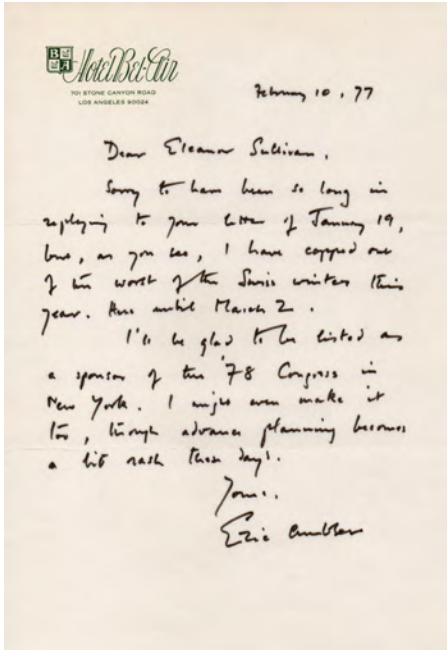 B
A
Hotel Bel-Air
701 STONE CANYON ROAD
LOS ANGELES 90024
February 10, 77
Dear Eleanor Sullivan,
Sorry to have been so long in
replying to your letter of January 19,
but, as you see, I have copped out
of the worst of the Swiss winter this
year. Here until March 2.
I'll be glad to be listed as
a sponsor of the '78 Congress in
New York. I might even make it
too, though advance planning becomes
a bit rash these days.
Yours,
Eric Ambler